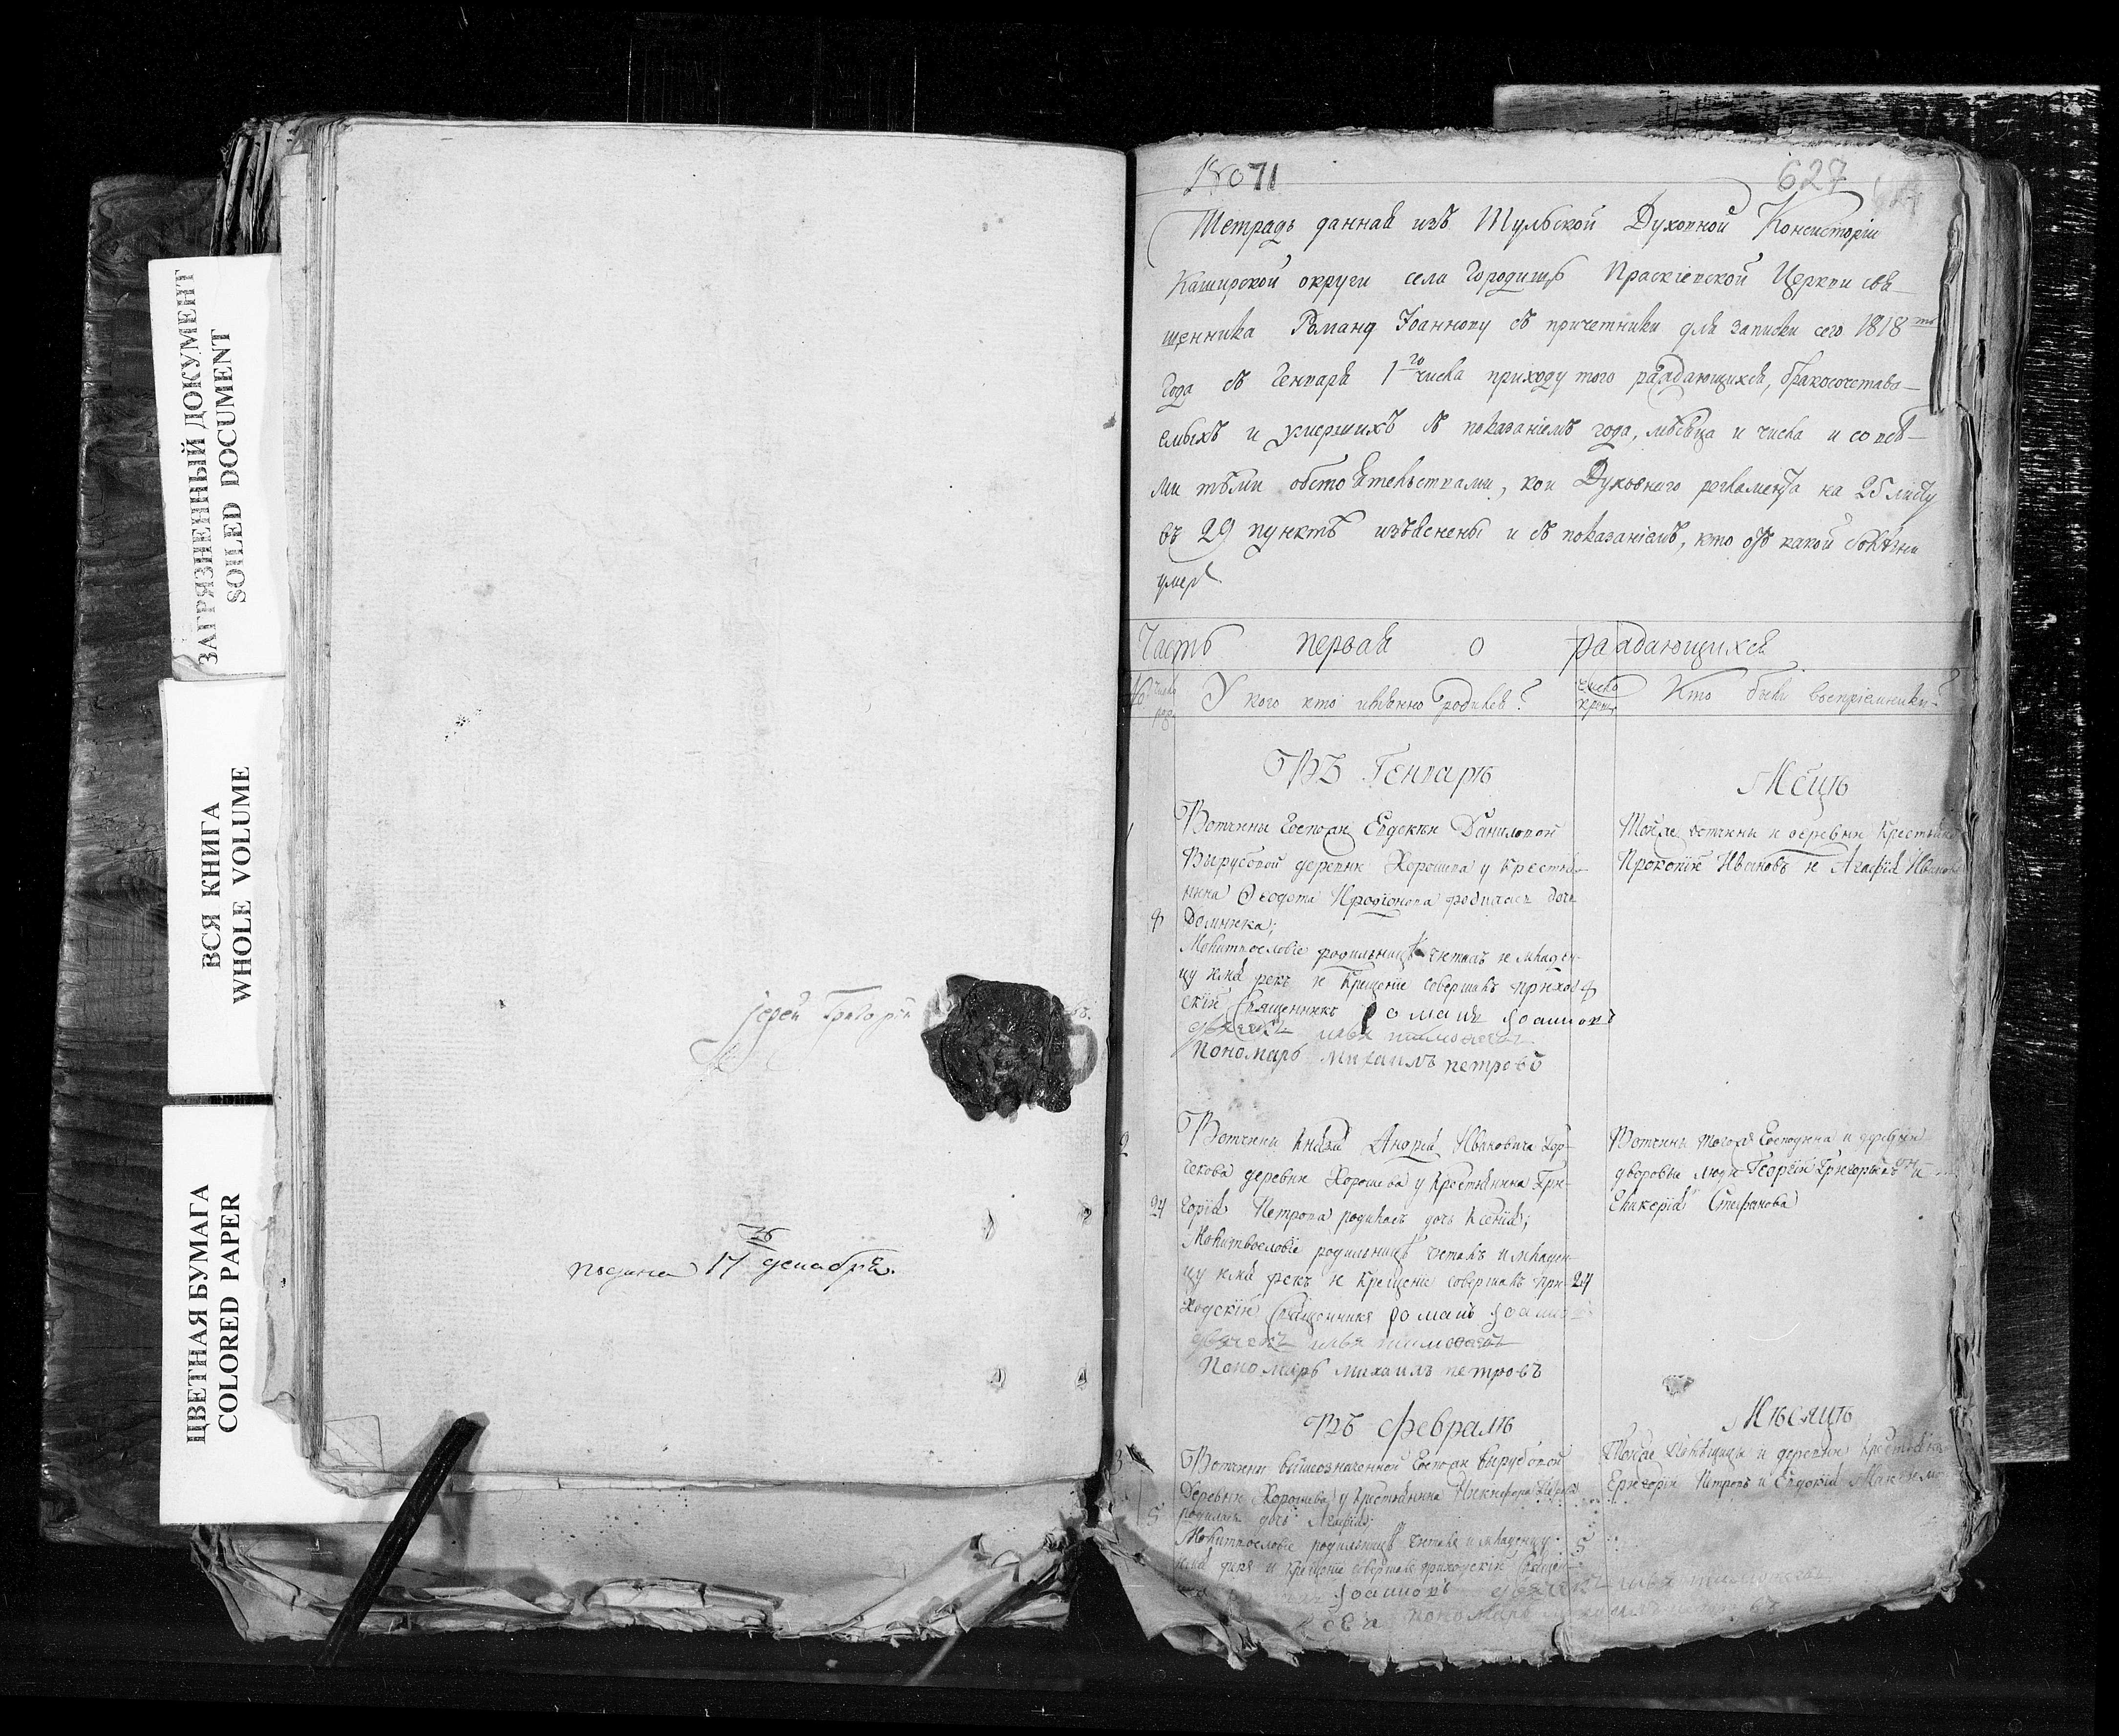 ЗАГРЯЗНЕННЫЙ ДОКУМЕНТ
SOILED DOCUMENT
ВСЯ КНИГА
WHOLE VOLUME
ЦВЕТНАЯ БУМАГА
COLORED PAPER
Іерей Григорій
подана 17 декабря.
71
627
Тетрадь данная изъ Тульской Духовной Консисторіи
Каширской округи села Городищь Церкви свя-
щенника Роману Іоаннову съ причетники для записки сего 1818 го
года съ Генваря 1 го числа приходу того раждающихся, бракосочетава-
емыхъ и умершихъ съ показаніемъ года, мѣсяца и числа и со всѣ-
ми тѣми обстоятельствами, кои Духовнаго регламента на 25 листу
въ 29 пунктѣ изъяснены и съ показаніемъ, кто отъ какой болѣзни
умеръ
Часть первая о раждающихся
№ число рож. У кого кто имянно родился? число крещ. Кто были воспріемники?
Въ Генварѣ Мсцѣ
1 Вотчины Госпожи Евдокіи Даниловой
Вырубовой деревни Хорошева у крестья-
нина Ѳеодота родилась дочь
8 Домника;
Молитвословіе родильницѣ читалъ и младен-
цу имя рекъ и Крещеніе совершалъ приход- 8
скій Священникъ Романъ Іоанновъ
дьячекъ илья тимофеевъ
Пономарь михаилъ петровъ
Тойже вотчины и деревни Крестьяне
Прокофій Ивановъ и Агафія Иванова
2 Вотчины Князя Андрея Ивановича Гор-
чакова деревни Хорошева у Крестьянина Гри-
24 горія Петрова родилась дочь Ксенія;
Молитвословіе родильницѣ читалъ и младен-
цу имя рекъ и Крещеніе совершалъ при- 24
ходскій Священникъ романъ Іоанновъ
дьячекъ илья тимофеевъ
Пономарь михаилъ петровъ
Вотчины тогоже Господина и деревни
дворовые люди Георгій Григорьевъ и
Гликерія Стефанова
Въ Февралѣ Мѣсяцѣ
3 Вотчины вышеозначенной Госпожи Вырубовой
Деревни Хорошева у крестьянина Никифора
5 родилась дочь Агафія;
Молитвословіе родильницѣ читалъ и младенцу 5
имя рекъ и крещеніе совершалъ приходскій Священ-
Іоанновъ дьячекъ илья тимофеевъ
пономарь михаилъ петровъ
Тойже помѣщицы и деревни Крестьяне
Григорій Петровъ и Евдокія